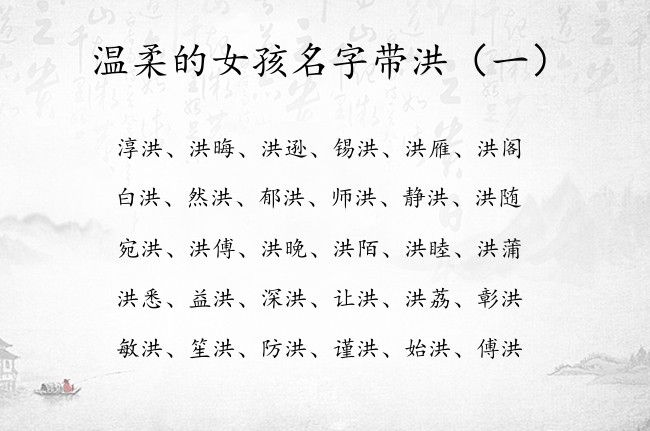 温柔的女孩名字带洪（一）
淳洪、洪晦、洪逊、锡洪、洪雁、洪阁
白洪、然洪、郁洪、师洪、静洪、洪随
宛洪、洪傅、洪晚、洪陌、洪睦、洪蒲
洪悉、益洪、深洪、让洪、洪荔、彰洪
敏洪、笙洪、防洪、谨洪、始洪、傅洪